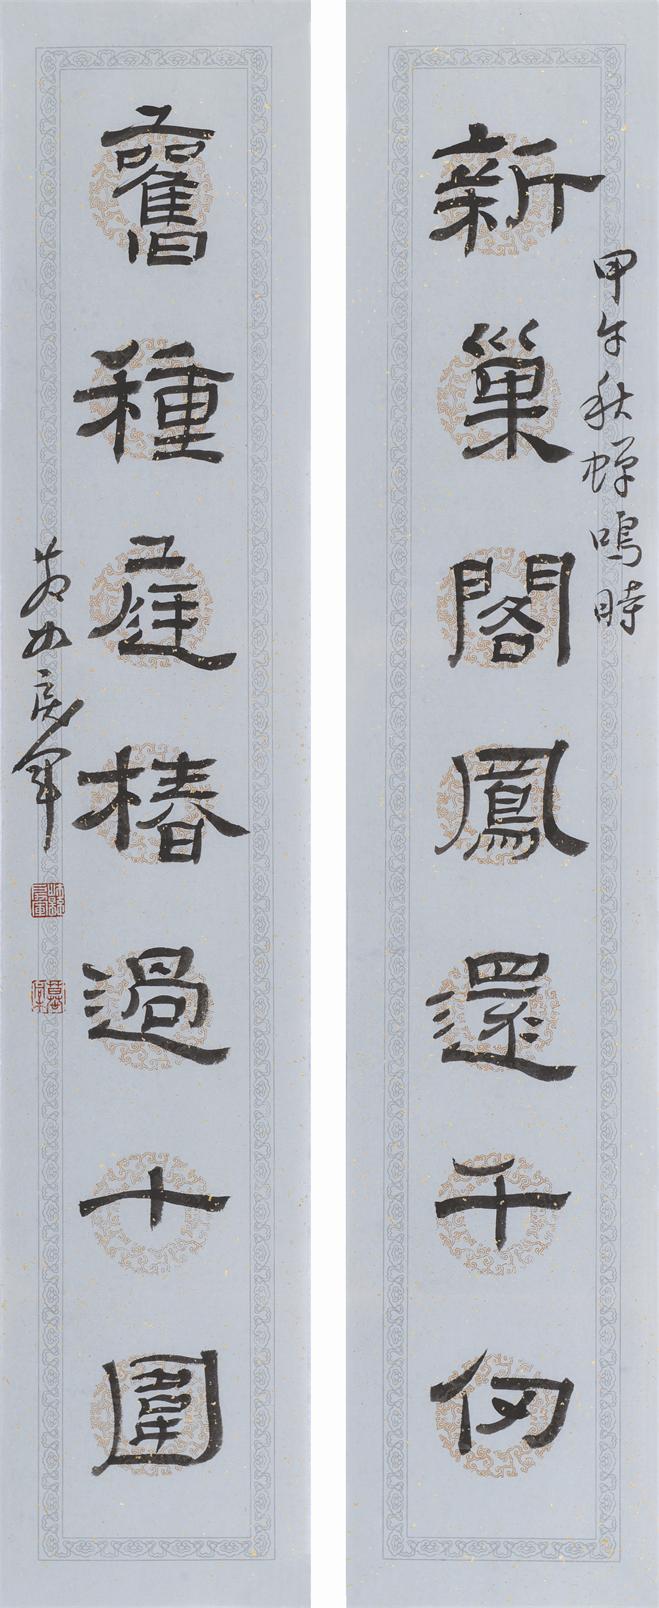 甲午秋蟬鳴時
新巢閣鳳還千仞
舊種庭椿過十圍